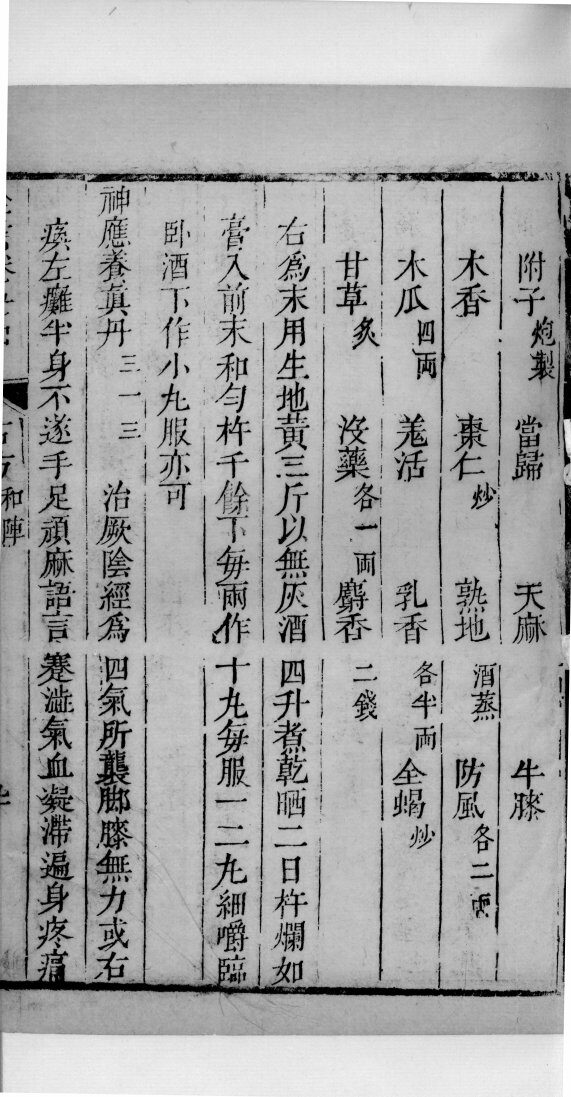 附子炮製 當歸 天麻 牛膝
木香 棗仁炒 熟地酒蒸 防風各二兩
木瓜四兩 羗活 乳香各半兩 全蝎炒
甘草炙 沒藥各一兩 麝香二錢
右爲末用生地黃三斤以無灰酒四升煮乾晒二日杵爛如
膏入前末和勻杵千餘下每兩作十九每服一二丸細嚼臨
卧酒下作小丸服亦可
神應養真丹三一三 治厥陰經爲四氣所襲脚膝無力或右
瘓左癱半身不遂手足頑麻語言蹇澁氣血凝滯遍身疼痛
古方和陣